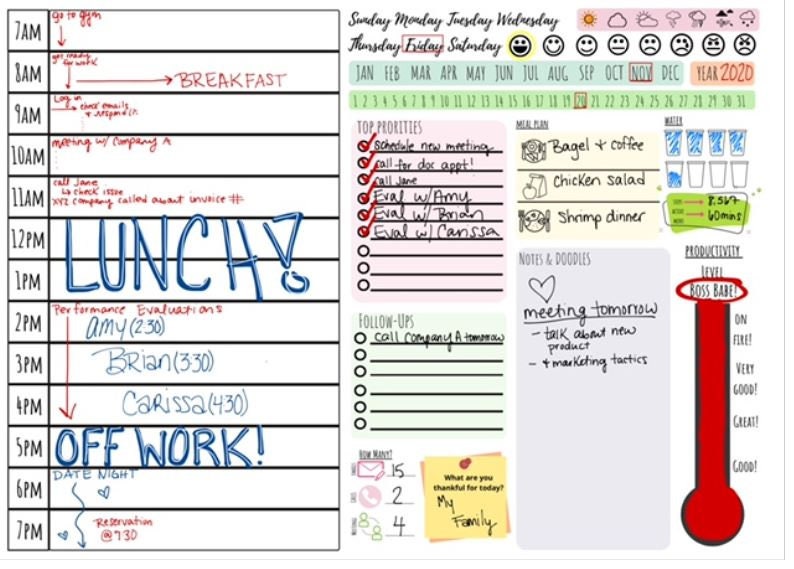 7AM
go to gym
8AM
get ready
for work
BREAKFAST
9AM
Log in
check emails
& respond
10AM
meeting w/ Company A
11AM
call Jane
check issue
XYZ company called about invoice #
12PM
LUNCH!
1PM
2PM
Performance Evaluations
Amy (2:30)
3PM
Brian (3:30)
4PM
Carissa (4:30)
5PM
OFF WORK!
6PM
DATE NIGHT
7PM
Reservation
@ 7:30
Sunday Monday Tuesday Wednesday
Thursday Friday Saturday
JAN FEB MAR APR MAY JUN JUL AUG SEP OCT NOV DEC YEAR 2020
1 2 3 4 5 6 7 8 9 10 11 12 13 14 15 16 17 18 19 20 21 22 23 24 25 26 27 28 29 30 31
TOP PRORITIES
schedule new meeting
call for doc appt!
call Jane
Eval w/ Amy
Eval w/ Brian
Eval w/ Carissa
FOLLOW-UPS
call Company A tomorrow
HOW MANY?
15
2
4
What are you
thankful for today?
My
Family
MEAL PLAN
Bagel & coffee
Chicken salad
Shrimp dinner
WATER
8,567
60mins
NOTES & DOODLES
meeting tomorrow
- talk about new
product
- & marketing tactics
PRODUCTIVITY
LEVEL
BOSS BABE!
ON
FIRE!
VERY
GOOD!
GREAT!
GOOD!